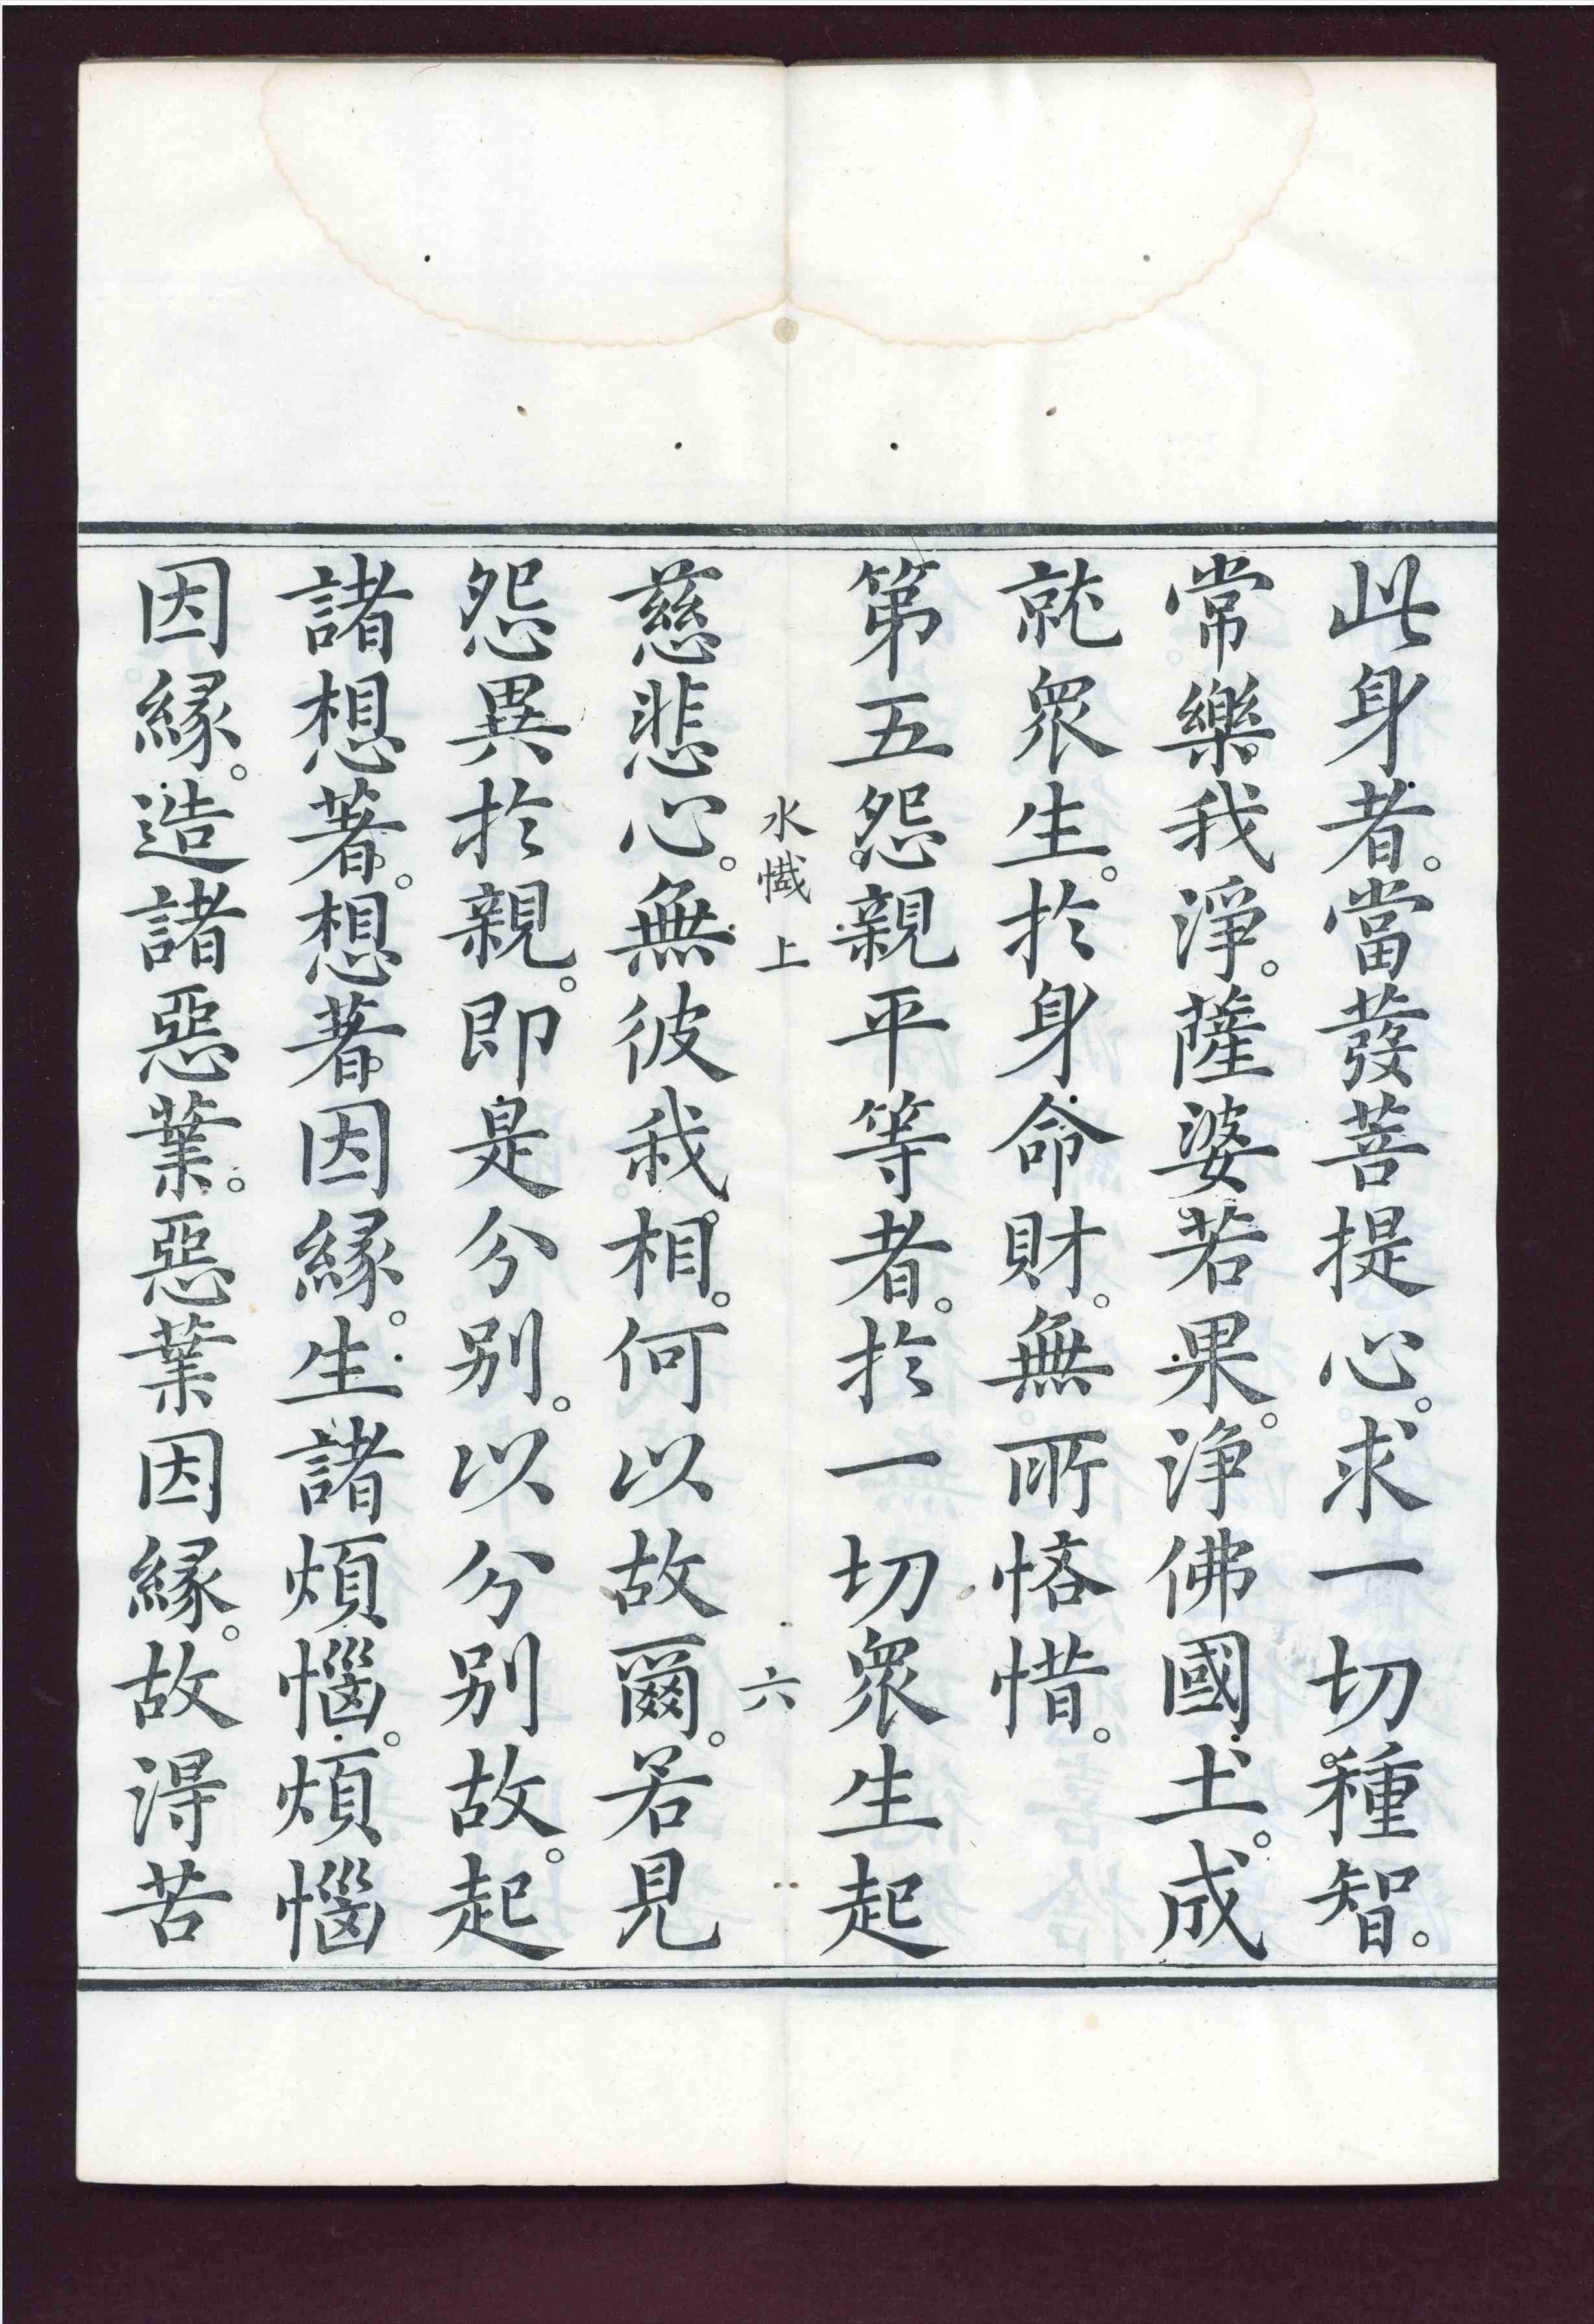 此身者。當發菩提心。求一切種智。
常樂我淨。薩婆若果。淨佛國土。成
就眾生。於身命財。無所悋惜。
第五怨親平等者。於一切眾生起
水懺 上 六
慈悲心。無彼我相。何以故爾。若見
怨異於親。即是分別。以分別故。起
諸想著。想著因緣。生諸煩惱。煩惱
因緣。造諸惡業。惡業因緣。故得苦